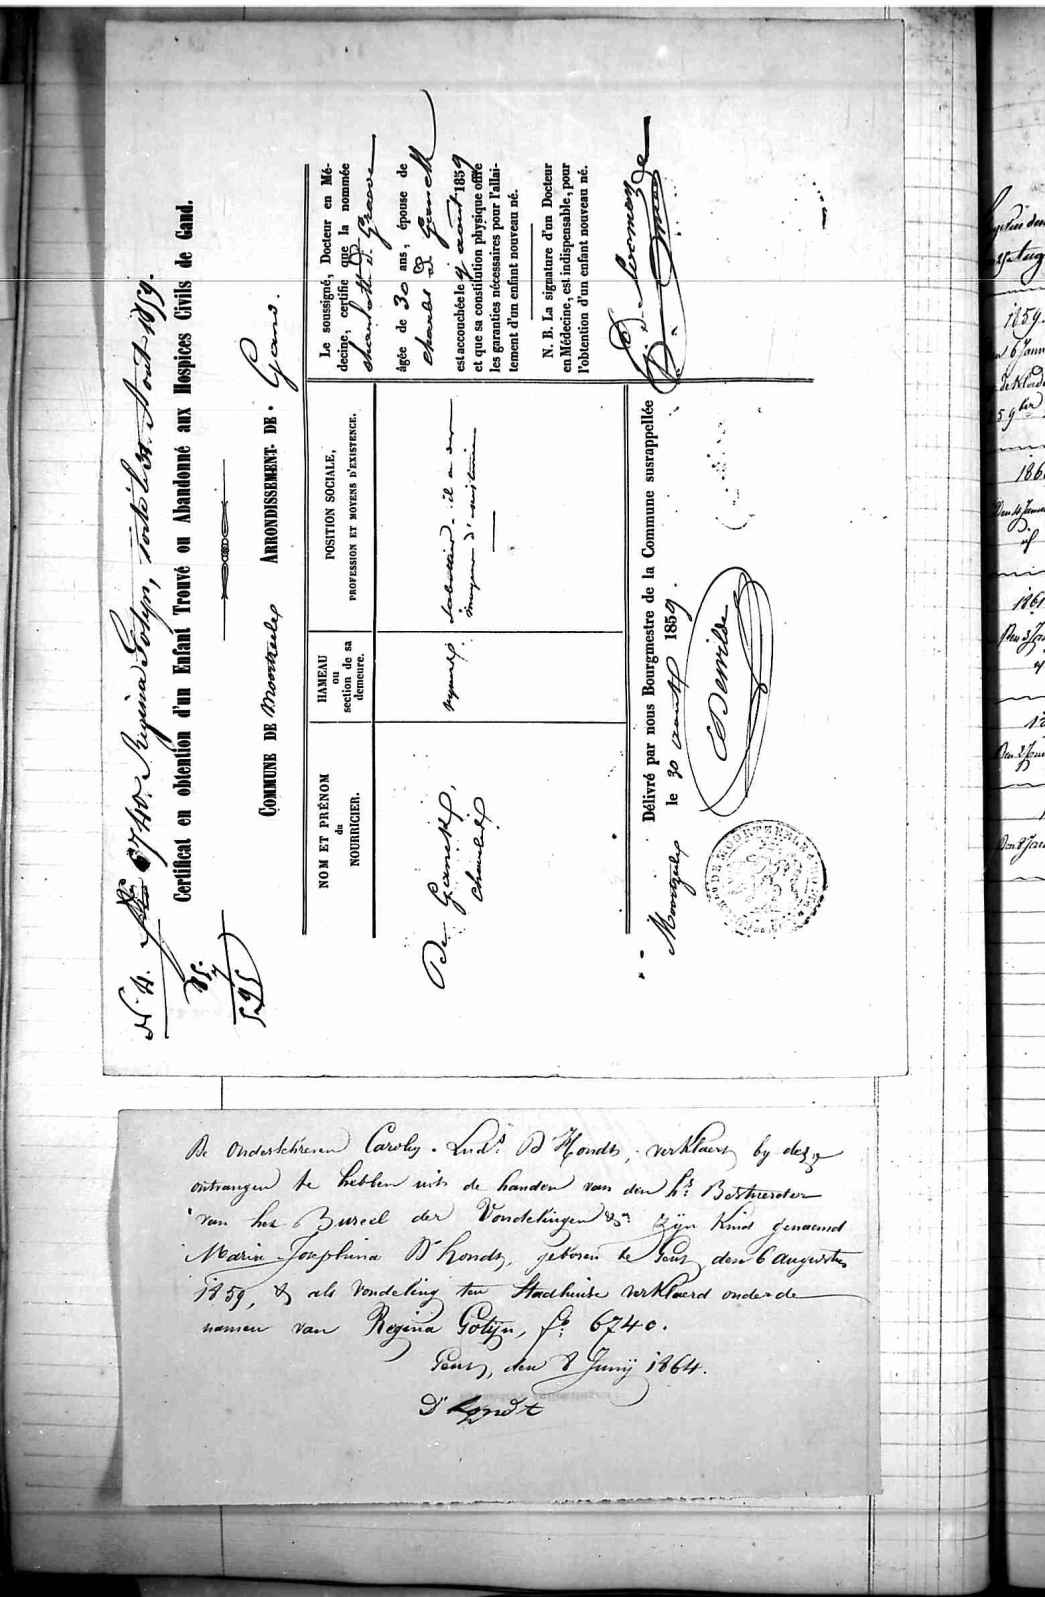 N. 4. 6740. Regina Gotyn, sortie le 31 Aout 1859.
Certificat en obtention d'un Enfant Trouvé ou Abandonné aux Hospices Civils de Gand.
85.
525
COMMUNE DE Moortzeele ARRONDISSEMENT DE Gand.
NOM ET PRÉNOM
du
NOURRICIER.
HAMEAU
ou
section de sa
demeure.
POSITION SOCIALE,
PROFESSION ET MOYENS D'EXISTENCE.
De Ganck,
Charles
sabottier - il a des
moyens d'existence
Le soussigné, Docteur en Mé-
decine, certifie que la nommée
charlotte de Graeve
âgée de 30 ans, épouse de
charles de Ganck
est accouchée le 9 aout 1859
et que sa constitution physique offre
les garanties nécessaires pour l'allai-
tement d'un enfant nouveau né.
N. B. La signature d'un Docteur
en Médecine, est indispensable, pour
l'obtention d'un enfant nouveau né.
Délivré par nous Bourgmestre de la Commune susrappellée
Moortzeele le 30 aout 1859.
De onderschreven Carolus Lud.s D'Hondt, verklaert by deze
ontvangen te hebben uit de handen van den hr. Bestuerder
van het Bureel der Vondelingen zyn Kind genaemd
Marie Josephina D'hondt, geboren te Gent den 6 augustus
1859, & als vondeling ten Stadhuise verklaerd onder de
namen van Regina Gotyn, fo: 6740.
Gent, den 8 Juny 1864.
D'hondt
1859.